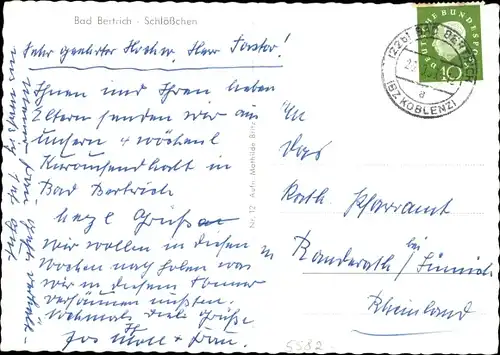 Bad Bertrich - Schlößchen
Sehr geehrter Hochw. Herr Pastor!
Ihnen und Ihren lieben
Eltern senden wir aus
unserm 4 wöchentl
Kuraufenthalt in
Bad Bertrich
herzl Grüße
Wir wollen in diesen
Wochen nach holen was
wir in diesem Sommer
versäumen mußten.
Nochmals viele Grüße
Jos Moll u Frau.
Nr. 12 Aufn. Mathilde
An
Das
Kath. Pfarramt
in Randerath bei
Rheinland
DEUTSCHE BUNDESPOST
10
(22b) BAD BERTRICH
a
(BZ KOBLENZ)
5582